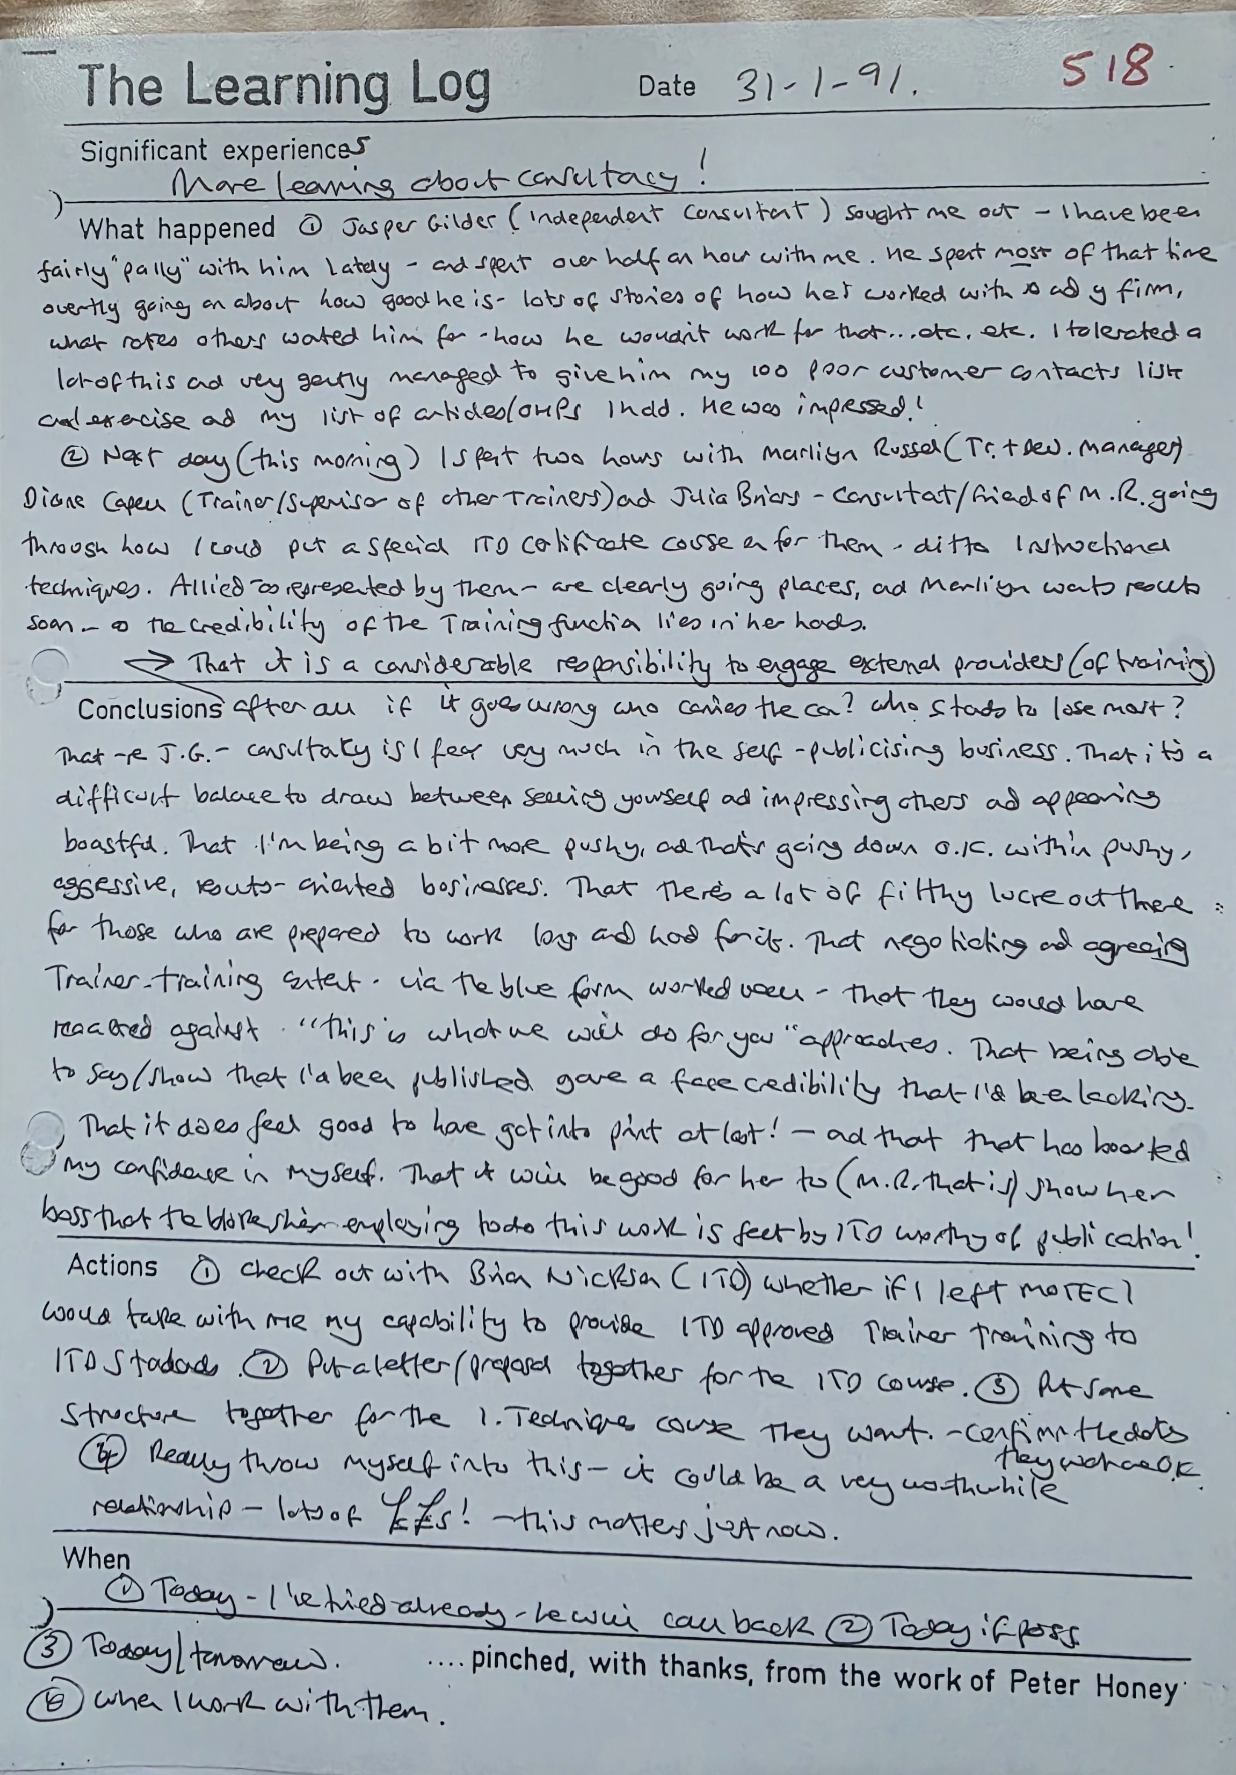 The Learning Log Date 31-1-91. 518
Significant experiences
More learning about consultacy!
What happened ① Jasper Gilder (Independent Consultant) sought me out - I have been
fairly "pally" with him lately - and spent over half an hour with me. He spent most of that time
overtly going on about how good he is - lots of stories of how he's worked with x and y firm,
what rates others wanted him for - how he wouldn't work for that... etc. etc. I tolerated a
lot of this and very gently managed to give him my 100 poor customer contacts list
and exercise and my list of articles/OHPs I hdd. He was impressed!
② Next day (this morning) I spent two hours with Marliyn Russel (Tr. + Dev. Manager)
Diane Capell (Trainer/Supervisor of other Trainers) and Julia Briars - Consultant/friend of M.R. going
through how I could put a special ITD certificate course on for them - ditto Instructional
techniques. Allied - as represented by them - are clearly going places, and Marliyn wants results
soon - as the credibility of the Training function lies in her hands.
→ That it is a considerable responsibility to engage external providers (of training)
Conclusions after all if it goes wrong who carries the can? Who stands to lose most?
That - re J.G. - consultancy is I fear very much in the self-publicising business. That it's a
difficult balance to draw between selling yourself and impressing others and appearing
boastful. That I'm being a bit more pushy, and that's going down O.K. within pushy,
aggressive, results-oriented businesses. That there's a lot of filthy lucre out there
for those who are prepared to work long and hard for it. That negotiating and agreeing
Trainer-training content - via the blue form worked well - that they would have
reacted against "this is what we will do for you" approaches. That being able
to say/show that I'd been published gave a face credibility that I'd been lacking.
That it does feel good to have got into print at last! - and that that has boosted
my confidence in myself. That it will be good for her to (M.R. that is) show her
boss that the bloke she's employing to do this work is felt by ITD worthy of publication!
Actions ① Check out with Brian Nickson (ITD) whether if I left MOTEC I
would take with me my capability to provide ITD approved Trainer training to
ITD Standards. ② Put a letter/proposal together for the ITD course. ③ Put some
structure together for the I. Technique course they want. - Confirm the dates
they want are O.K.
④ Really throw myself into this - it could be a very worthwhile
relationship - lots of £££s! - this matters just now.
When
① Today - I've tried already - he will call back ② Today if poss
③ Today/tomorrow. .... pinched, with thanks, from the work of Peter Honey
④ when I work with them.